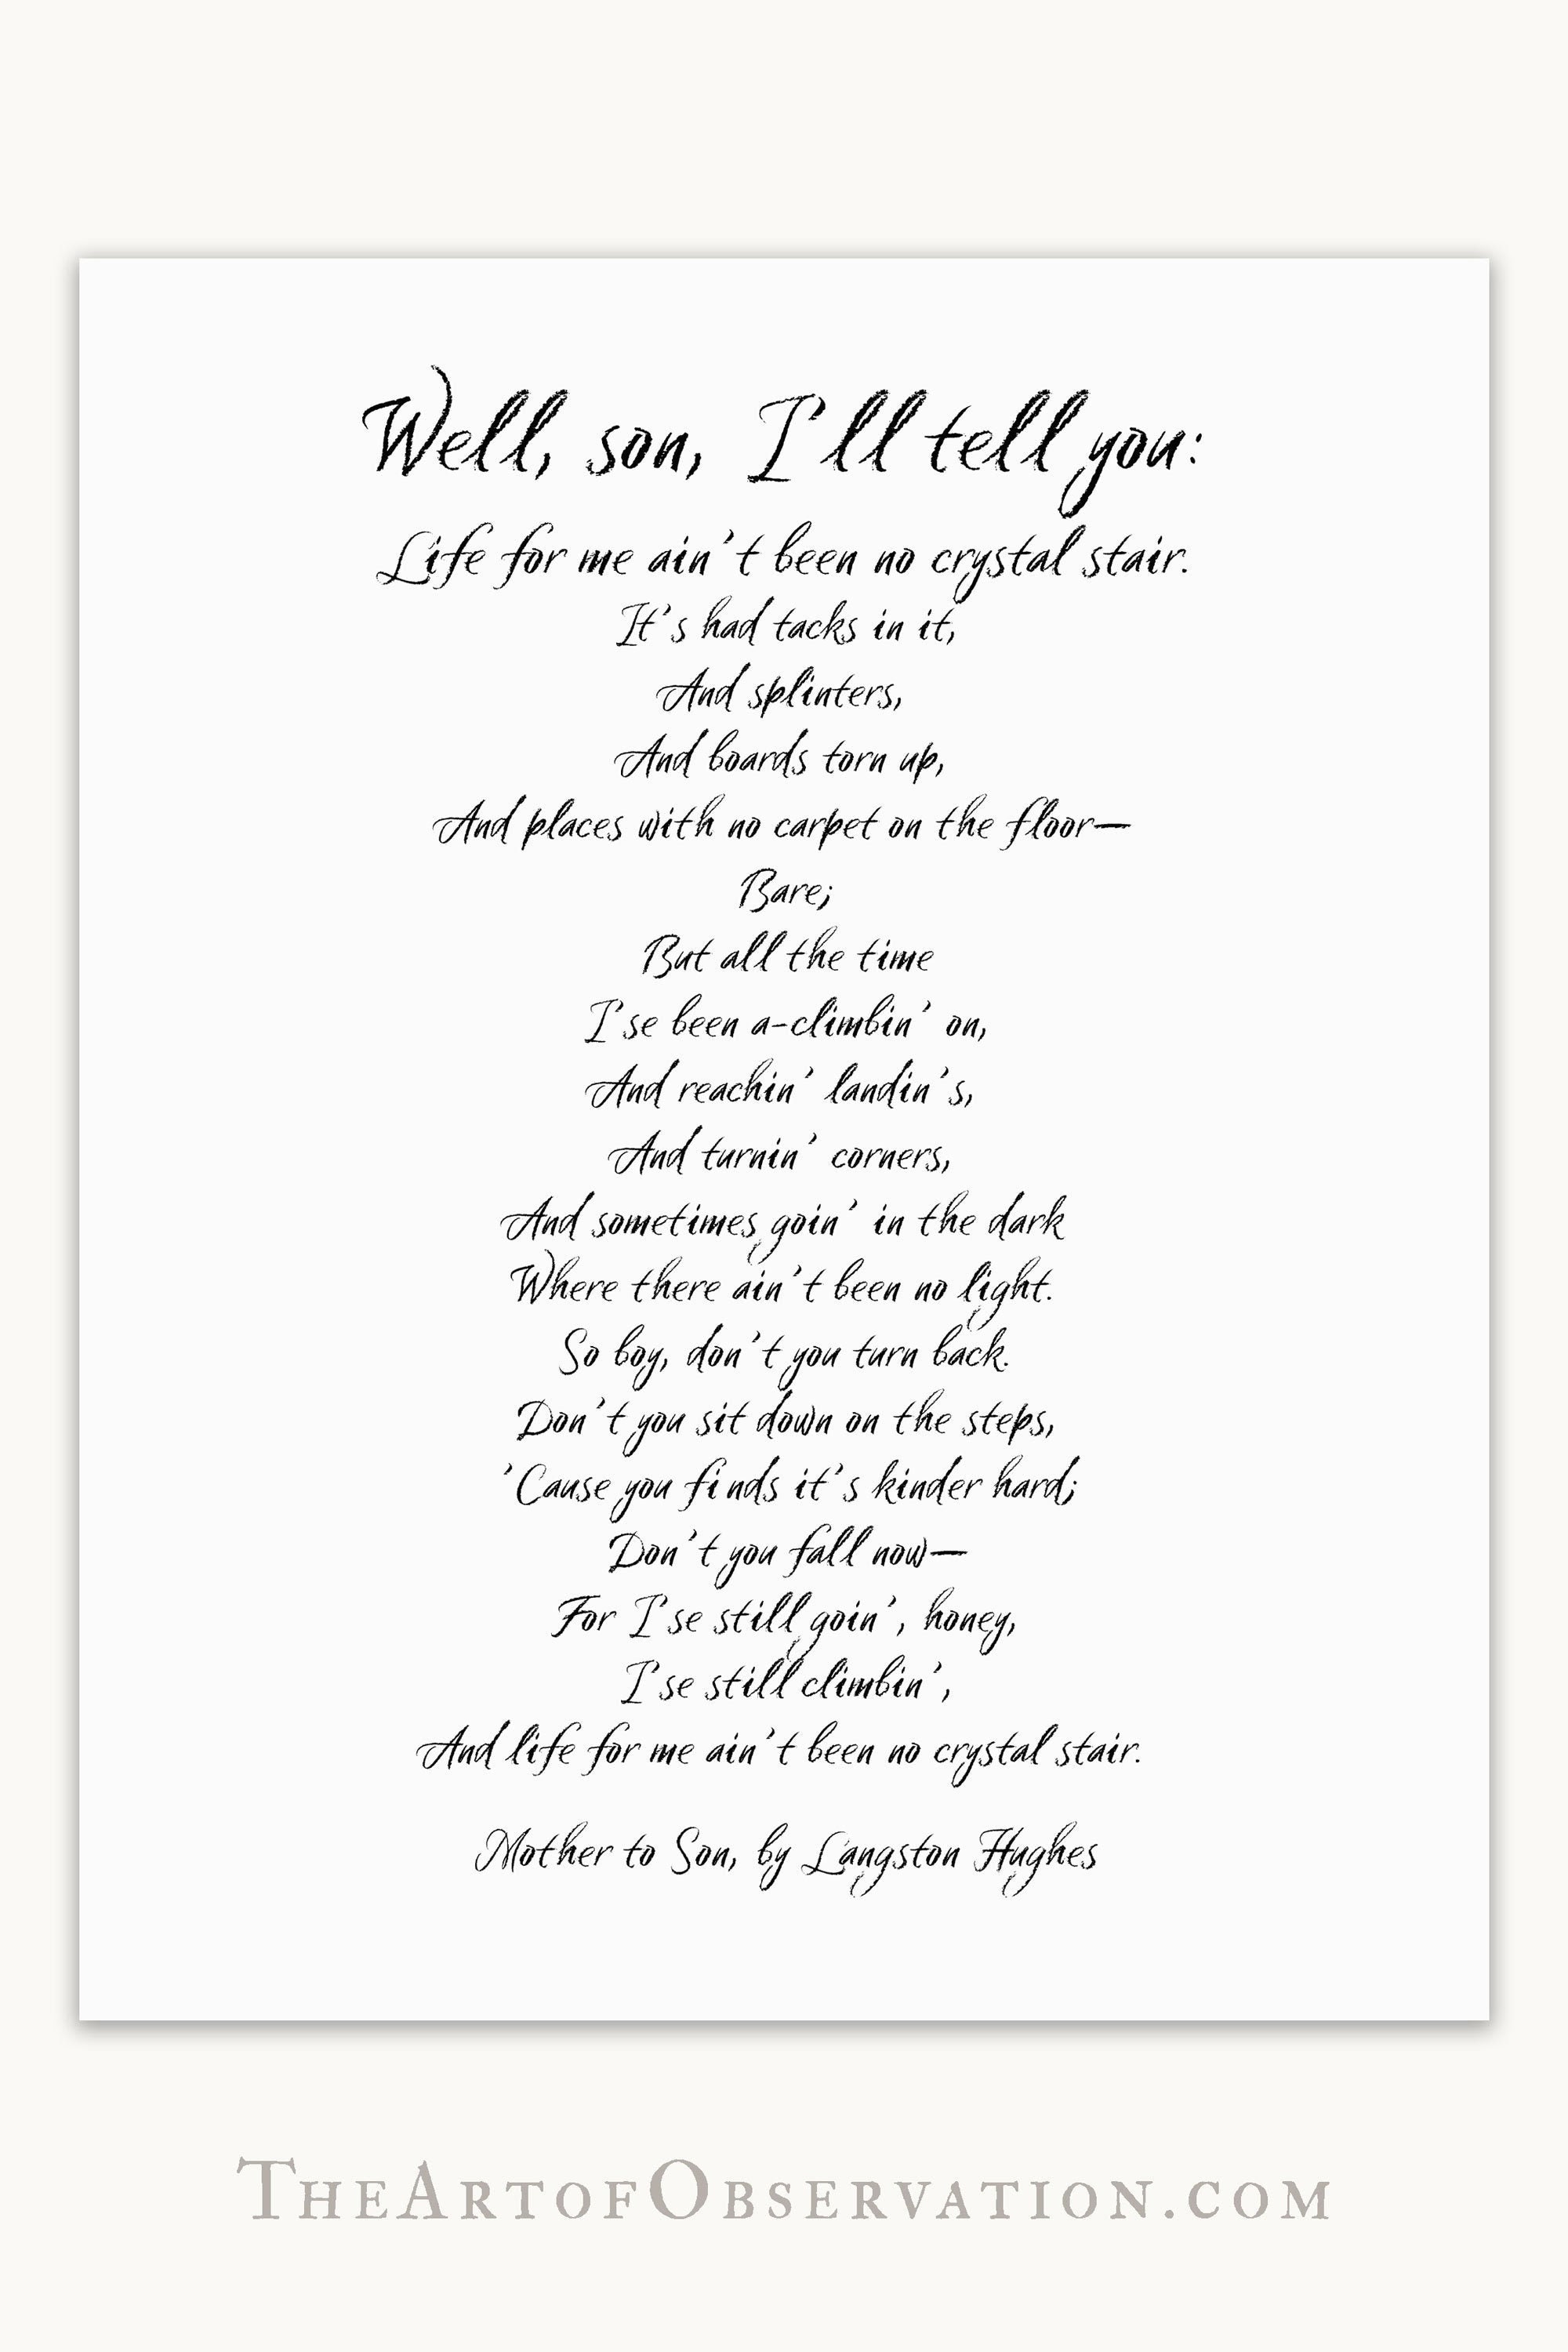 Well, son, I'll tell you:
Life for me ain't been no crystal stair.
It's had tacks in it,
And splinters,
And boards torn up,
And places with no carpet on the floor—
Bare;
But all the time
I'se been a-climbin' on,
And reachin' landin's,
And turnin' corners,
And sometimes goin' in the dark
Where there ain't been no light.
So boy, don't you turn back.
Don't you sit down on the steps,
'Cause you finds it's kinder hard;
Don't you fall now—
For I'se still goin', honey,
I'se still climbin',
And life for me ain't been no crystal stair.
Mother to Son, by Langston Hughes
TheArtofObservation.com